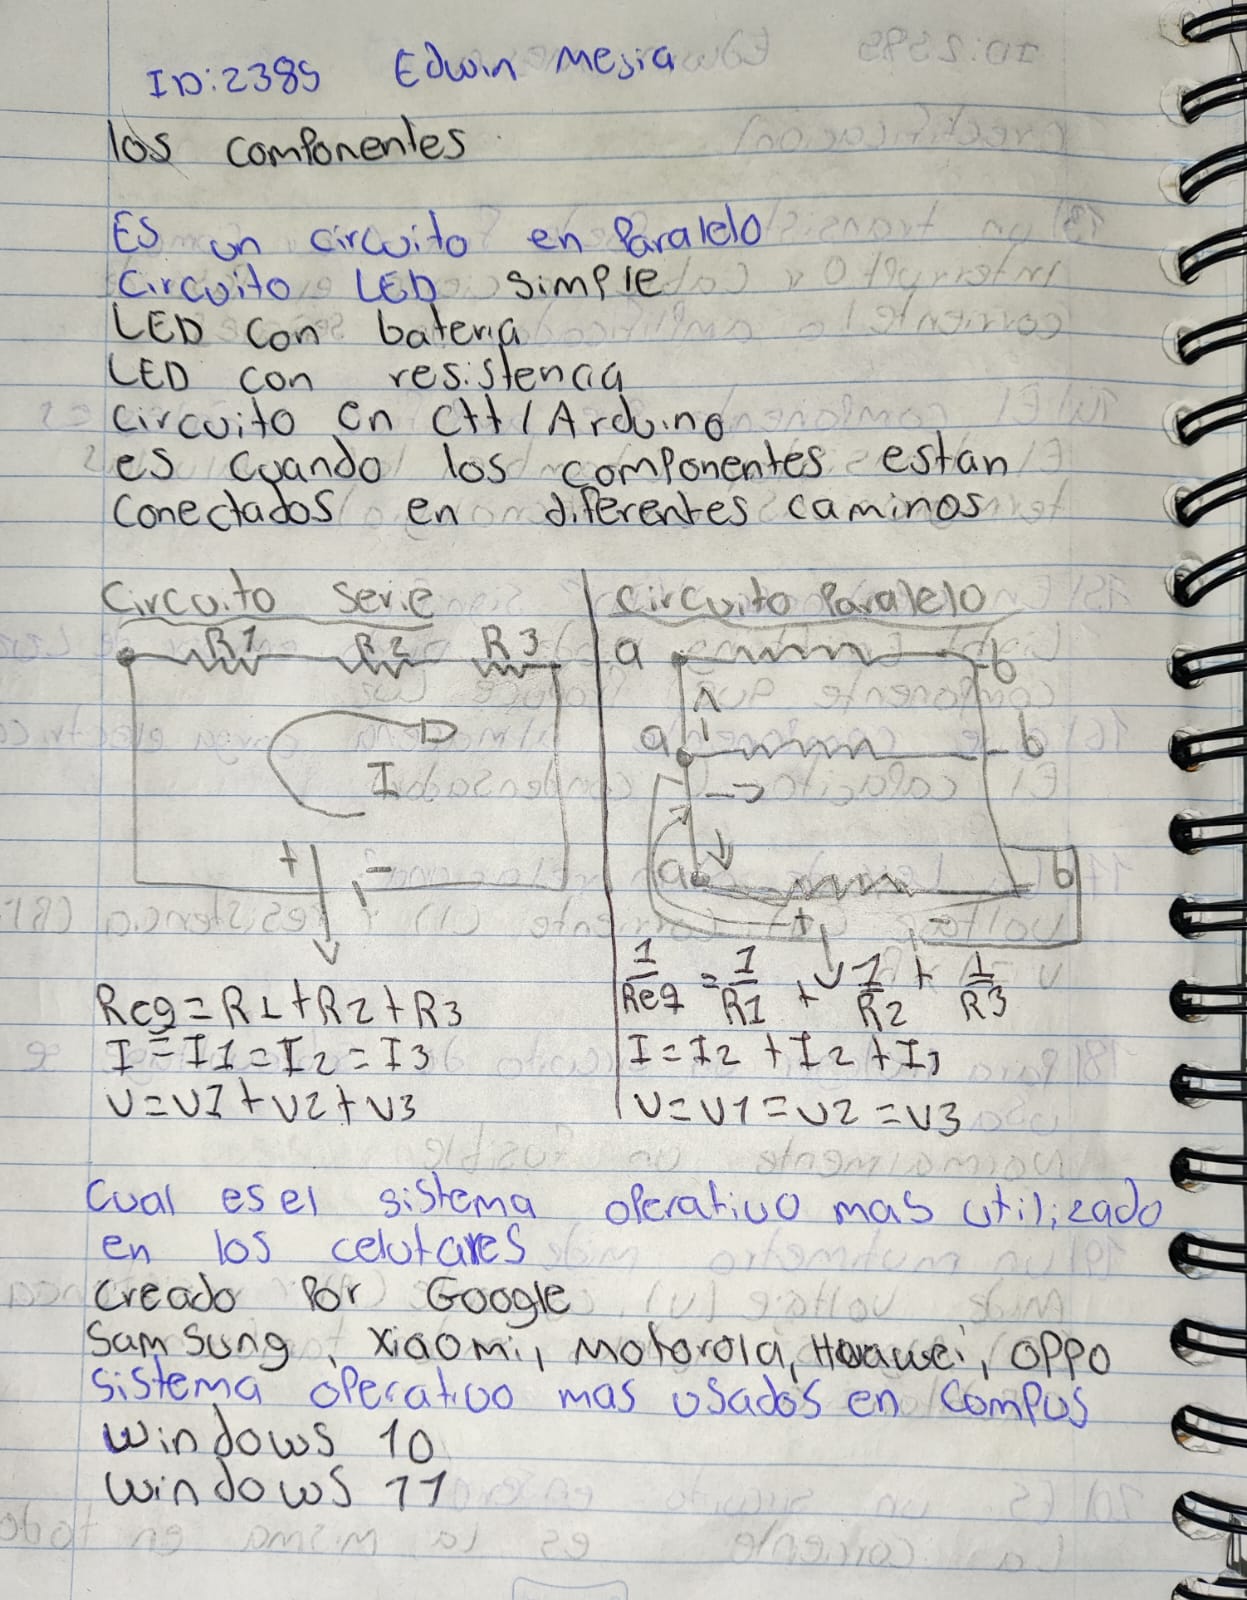 ID:2385 Edwin Mesia
los componentes
Es un circuito en Paralelo
Circuito LED simple
LED con bateria
LED con resistencia
circuito en C++/Arduino
es cuando los componentes estan
conectados en diferentes caminos
Circuito Serie
R1 R2 R3
I
+ -
Req=R1+R2+R3
I=I1=I2=I3
V=V1+V2+V3
Circuito Paralelo
a b
a b
a b
+ -
1/Req = 1/R1 + 1/R2 + 1/R3
I=I2+I2+I3
V=V1=V2=V3
Cual es el sistema operativo mas utilizado
en los celulares
Creado Por Google
Samsung, Xiaomi, Motorola, Huawei, OPPO
Sistema operativo mas usados en compus
Windows 10
Windows 11